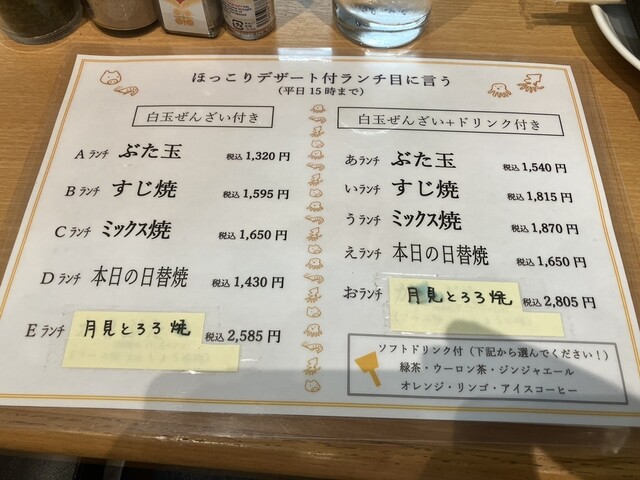 ほっこりデザート付ランチ目に言う
(平日15時まで)
白玉ぜんざい付き
Aランチ ぶた玉 税込1,320円
Bランチ すじ焼 税込1,595円
Cランチ ミックス焼 税込1,650円
Dランチ 本日の日替焼 税込1,430円
Eランチ 月見とろろ焼 税込2,585円
白玉ぜんざい+ドリンク付き
あランチ ぶた玉 税込1,540円
いランチ すじ焼 税込1,815円
うランチ ミックス焼 税込1,870円
えランチ 本日の日替焼 税込1,650円
おランチ 月見とろろ焼 税込2,805円
ソフトドリンク付(下記から選んでください!)
緑茶・ウーロン茶・ジンジャエール
オレンジ・リンゴ・アイスコーヒー